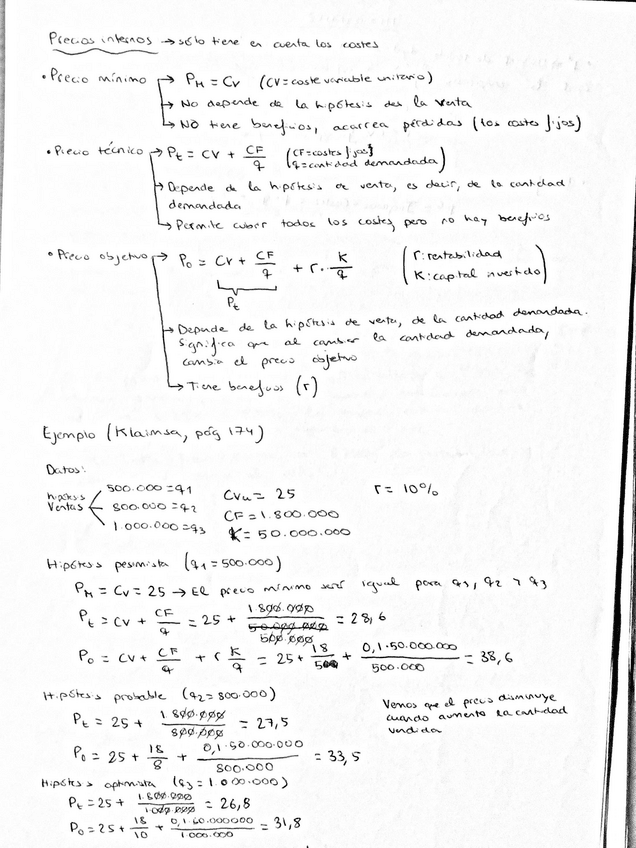 Precios internos → sólo tiene en cuenta los costes
• Precio mínimo → PM = CV (CV = coste variable unitario)
→ No depende de la hipótesis de la venta
→ NO tiene beneficios, acarrea pérdidas (los costes fijos)
• Precio técnico → Pt = CV + CF/q (CF = costes fijos) (q = cantidad demandada)
→ Depende de la hipótesis de venta, es decir, de la cantidad
demandada
→ Permite cubrir todos los costes, pero no hay beneficios
• Precio objetivo → Po = CV + CF/q + r · K/q (r: rentabilidad
K: capital invertido)
Pt
→ Depende de la hipótesis de venta, de la cantidad demandada.
Significa que al cambiar la cantidad demandada,
cambia el precio objetivo
→ Tiene beneficios (r)
Ejemplo (Klaimsa, pág 174)
Datos:
hipótesis Ventas
500.000 = q1 CVu = 25 r = 10%
800.000 = q2 CF = 1.800.000
1.000.000 = q3 K = 50.000.000
Hipótesis pesimista (q1 = 500.000)
PM = CV = 25 → El precio mínimo será igual para q1, q2 y q3
Pt = CV + CF/q = 25 + 1.800.000/500.000 = 28,6
Po = CV + CF/q + r K/q = 25 + 18/5 + 0,1·50.000.000/500.000 = 38,6
Hipótesis probable (q2 = 800.000)
Pt = 25 + 1.800.000/800.000 = 27,5
Po = 25 + 18/8 + 0,1·50.000.000/800.000 = 33,5
Vemos que el precio disminuye
cuando aumenta la cantidad
vendida
Hipótesis optimista (q3 = 1.000.000)
Pt = 25 + 1.800.000/1.000.000 = 26,8
Po = 25 + 18/10 + 0,1·50.000000/1.000.000 = 31,8